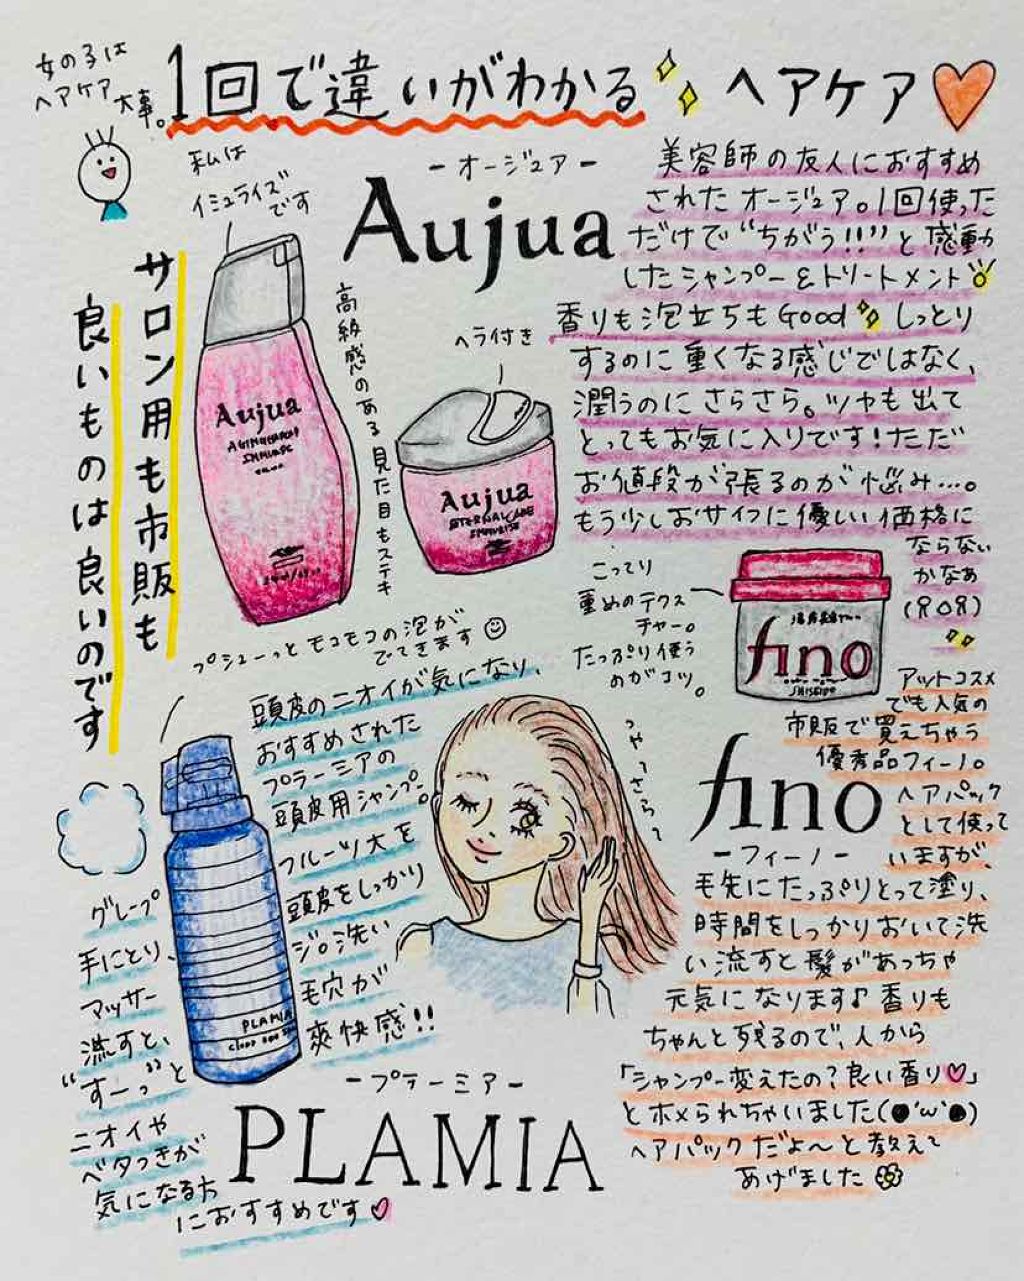 女の子は
ヘアケア
大事。
1回で違いがわかる ヘアケア
私は
イミュライズ
です
サロン用も市販も
良いものは良いのです
ーオージュアー
Aujua
美容師の友人におすすめ
されたオージュア。1回使った
だけで“ちがう!!”と感動
したシャンプー&トリートメント
香りも泡立ちもGood しっとり
するのに重くなる感じではなく、
潤うのにさらさら。ツヤも出て
とってもお気に入りです!ただ
お値段が張るのが悩み…。
もう少しおサイフに優しい価格に
ならない
かなぁ
高級感のある見た目もステキ
ヘラ付き
Aujua
Aujua
こってり
重めのテクス
チャー。
たっぷり使う
のがコツ。
fino
SHISEIDO
アットコスメ
でも人気の
市販で買えちゃう
優秀品フィーノ。
fino
ーフィーノー
ヘアパック
として使って
いますが、
毛先にたっぷりとって塗り、
時間をしっかりおいて洗
い流すと髪があっちゃ
元気になります♪香りも
ちゃんと残るので、人から
「シャンプー変えたの?良い香り♡」
とホメられちゃいました(●'ω'●)
ヘアパックだよ〜と教えて
あげました
つやっさらっ
プシューっとモコモコの泡が
でてきます
頭皮のニオイが気になり、
おすすめされた
プラーミアの
頭皮用シャンプー。
フルーツ大を
頭皮をしっかり
洗い
毛穴が
爽快感!!
グレープ
手にとり、
マッサー
流すと、
“すーっ”と
ニオイや
ベタつきが
気になる方
におすすめです♡
PLAMIA
ープラーミアー
PLAMIA